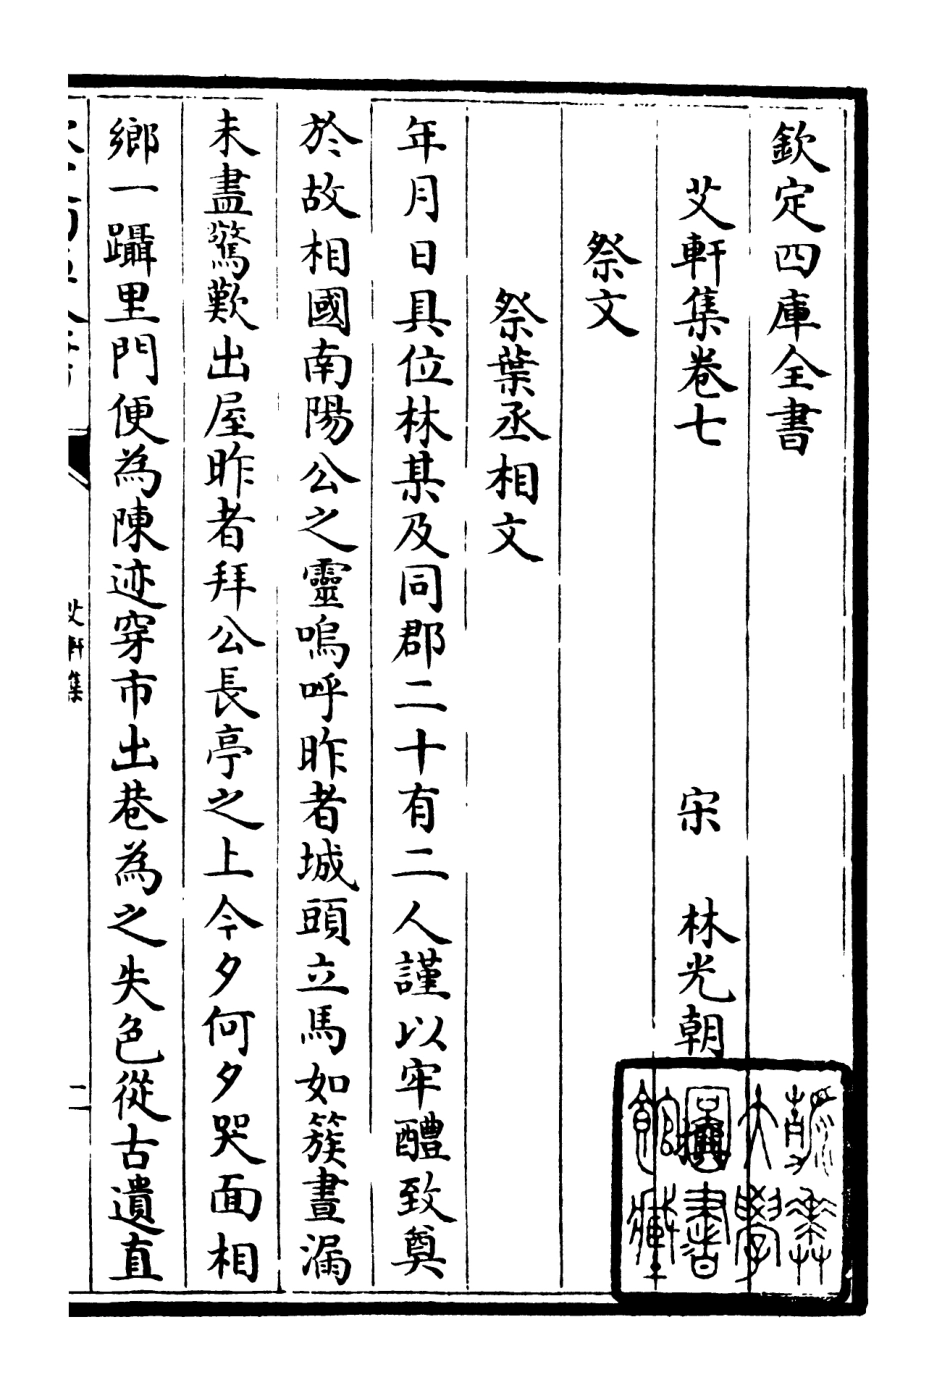 欽定四庫全書
艾軒集卷七
宋 林光朝 撰
祭文
祭葉丞相文
年月日具位林某及同郡二十有二人謹以牢醴致奠
於故相國南陽公之靈嗚呼昨者城頭立馬如簇晝漏
未盡驚歎出屋昨者拜公長亭之上今夕何夕哭面相
鄉一躡里門便為陳迹穿市出巷為之失色從古遺直
艾軒集
一